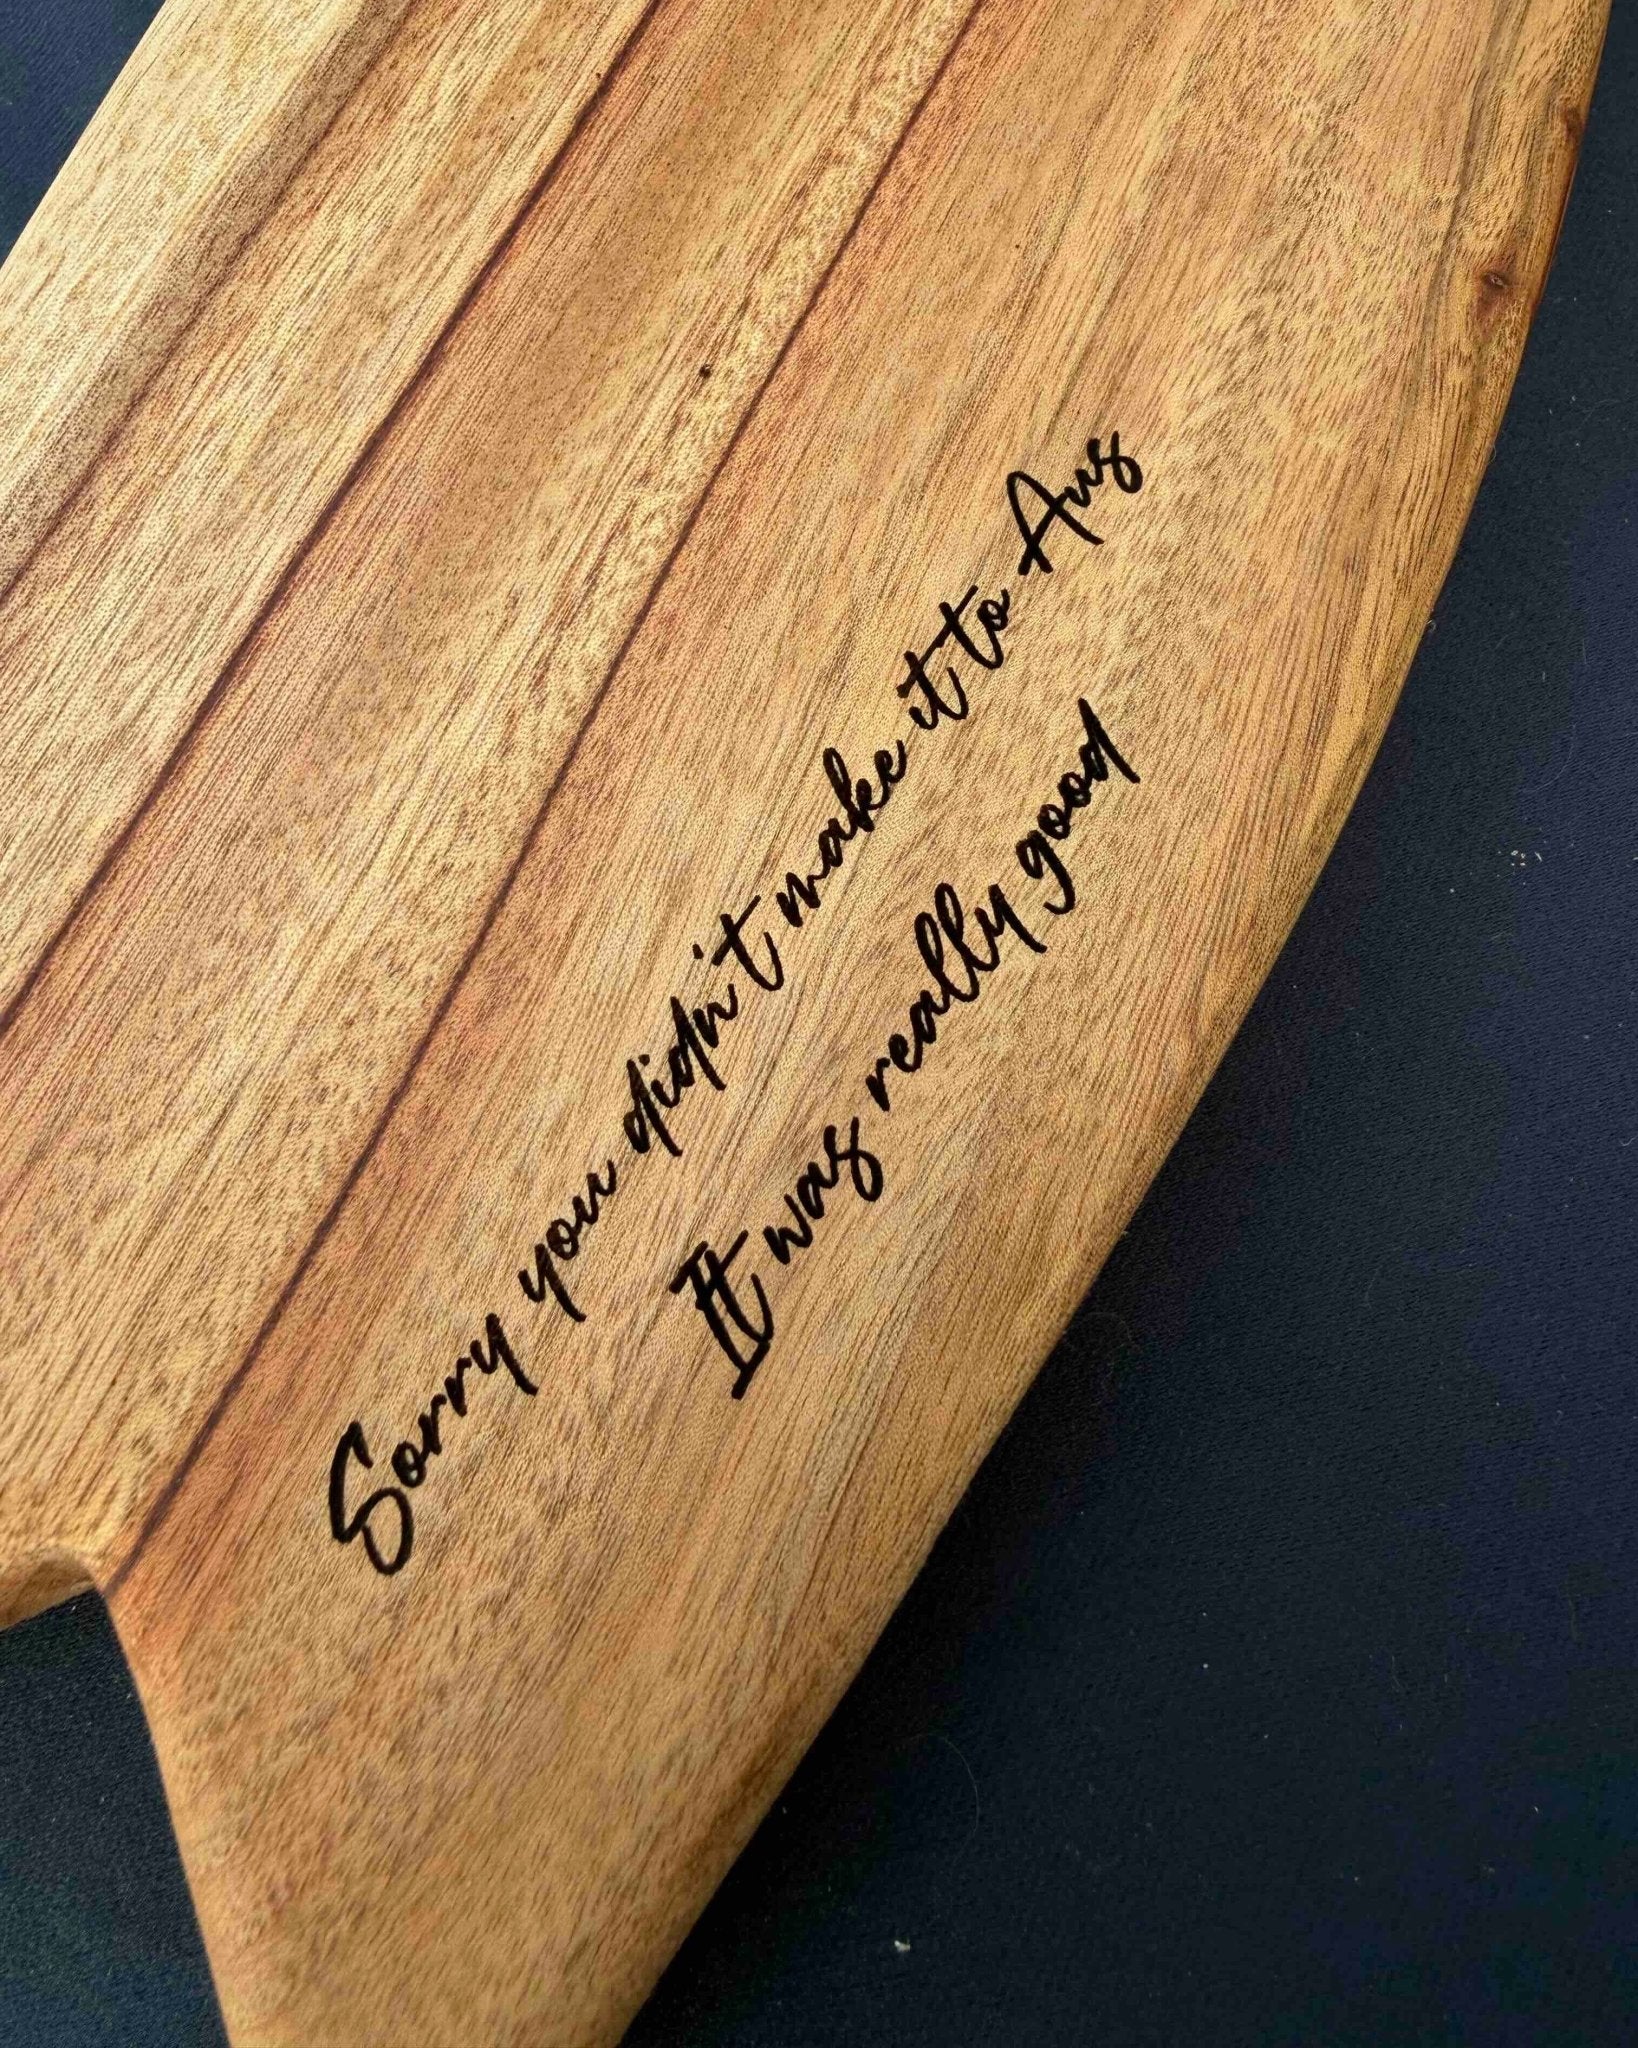 Sorry you didn't make it to Aus
It was really good